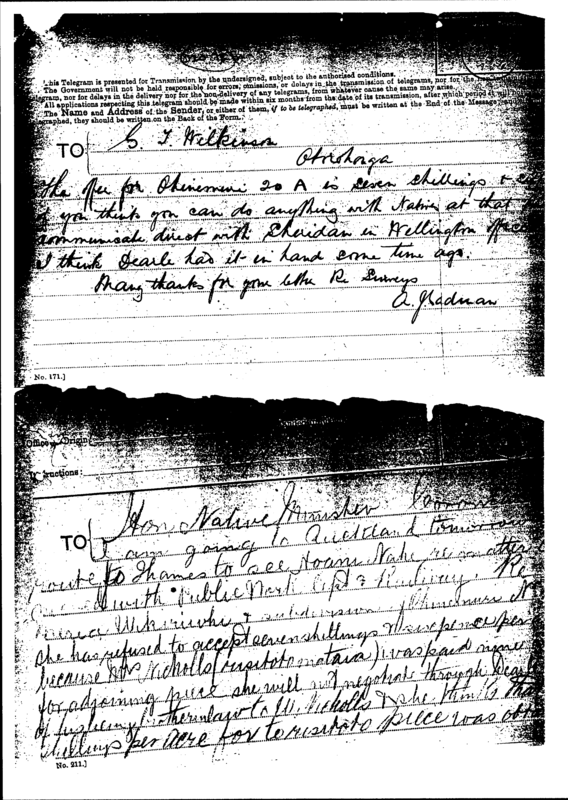 This Telegram is presented for Transmission by the undersigned, subject to the authorised conditions.
The Government will not be held responsible for errors, omissions, or delays in the transmission of telegrams, nor for the
telegram, nor for delays in the delivery nor for the non-delivery of any telegrams, from whatever cause the same may arise.
All applications respecting this telegram should be made within six months from the date of its transmission, after which period it will
The Name and Address of the Sender, or either of them, if to be telegraphed, must be written at the End of the Message
graphed, they should be written on the Back of the Form.
TO G. T. Wilkinson
Otorohanga
The offer for Ohinemuri 20 A is seven shillings &
if you think you can do anything with Natives at that
communicate direct with Sheridan in Wellington office
I think Dearle had it in hand some time ago.
Many thanks for your letter Re Surveys
A. J. Cadman
No. 171.]
Office of Origin:
Instructions:
TO Hon Native Minister
am going to Auckland tomorrow
route to Thames to see Hoani Nahe re matters
with Public Works Dept & Railway. Re
subdivision Ohinemuri No
she has refused to accept seven shillings & sixpence per
because Mrs Nicholls was paid more
for adjoining piece she will not negotiate through Dearle
in law to W. Nicholls & she thinks that
shillings per acre for piece was
No. 211.]